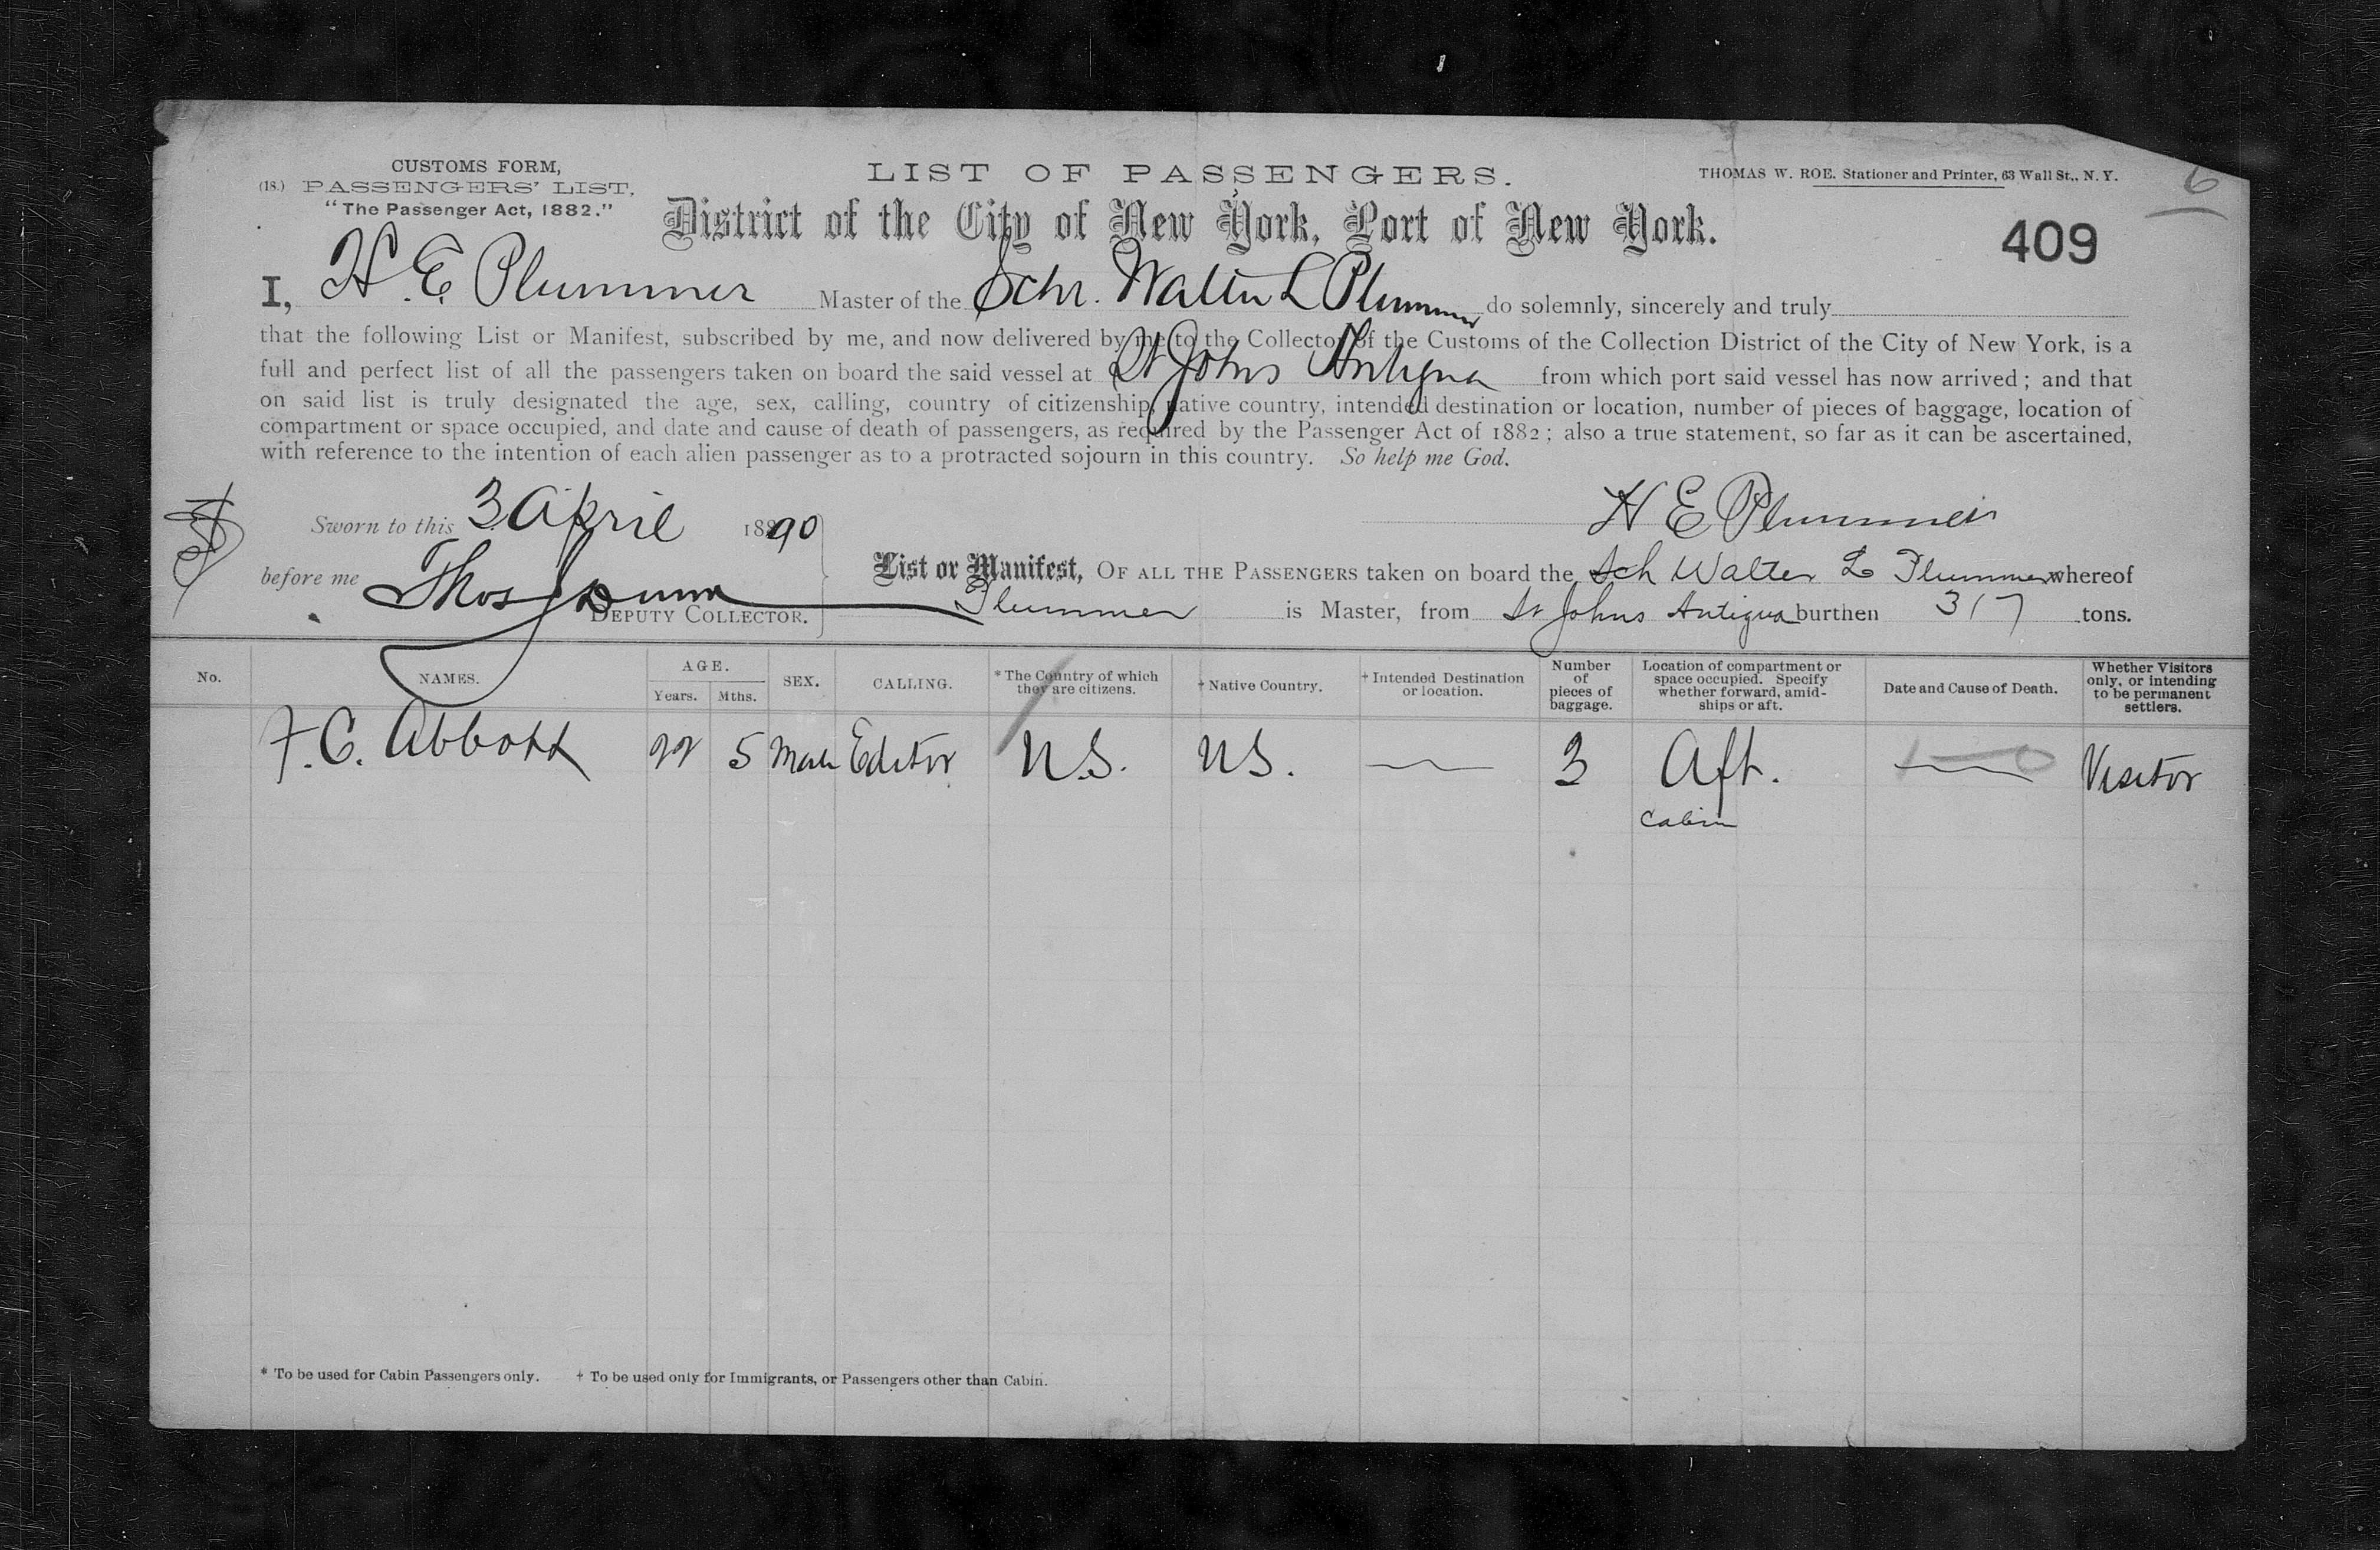 CUSTOMS FORM,
(18.) PASSENGERS' LIST,
"The Passenger Act, 1882."
LIST OF PASSENGERS.
THOMAS W. ROE. Stationer and Printer, 63 Wall St., N. Y.
6
District of the City of New York, Port of New York.
409
I, H. E. Plummer Master of the Schr. Walter L Plummer do solemnly, sincerely and truly
that the following List or Manifest, subscribed by me, and now delivered by me to the Collector of the Customs of the Collection District of the City of New York, is a
full and perfect list of all the passengers taken on board the said vessel at St Johns Antigua from which port said vessel has now arrived; and that
on said list is truly designated the age, sex, calling, country of citizenship, native country, intended destination or location, number of pieces of baggage, location of
compartment or space occupied, and date and cause of death of passengers, as required by the Passenger Act of 1882; also a true statement, so far as it can be ascertained,
with reference to the intention of each alien passenger as to a protracted sojourn in this country. So help me God.
Sworn to this 3 April 1890
H E Plummer
before me Thos J Dunn
DEPUTY COLLECTOR.
List or Manifest, OF ALL THE PASSENGERS taken on board the Sch Walter L Plummer whereof
Plummer is Master, from St Johns Antigua burthen 317 tons.
No. NAMES. AGE. Years. Mths. SEX. CALLING. * The Country of which they are citizens. † Native Country. † Intended Destination or location. Number of pieces of baggage. Location of compartment or space occupied. Specify whether forward, amidships or aft. Date and Cause of Death. Whether Visitors only, or intending to be permanent settlers.
F. C. Abbott 22 5 Male Editor U.S. U.S. — 3 Aft. — Visitor
Cabin
* To be used for Cabin Passengers only. † To be used only for Immigrants, or Passengers other than Cabin.